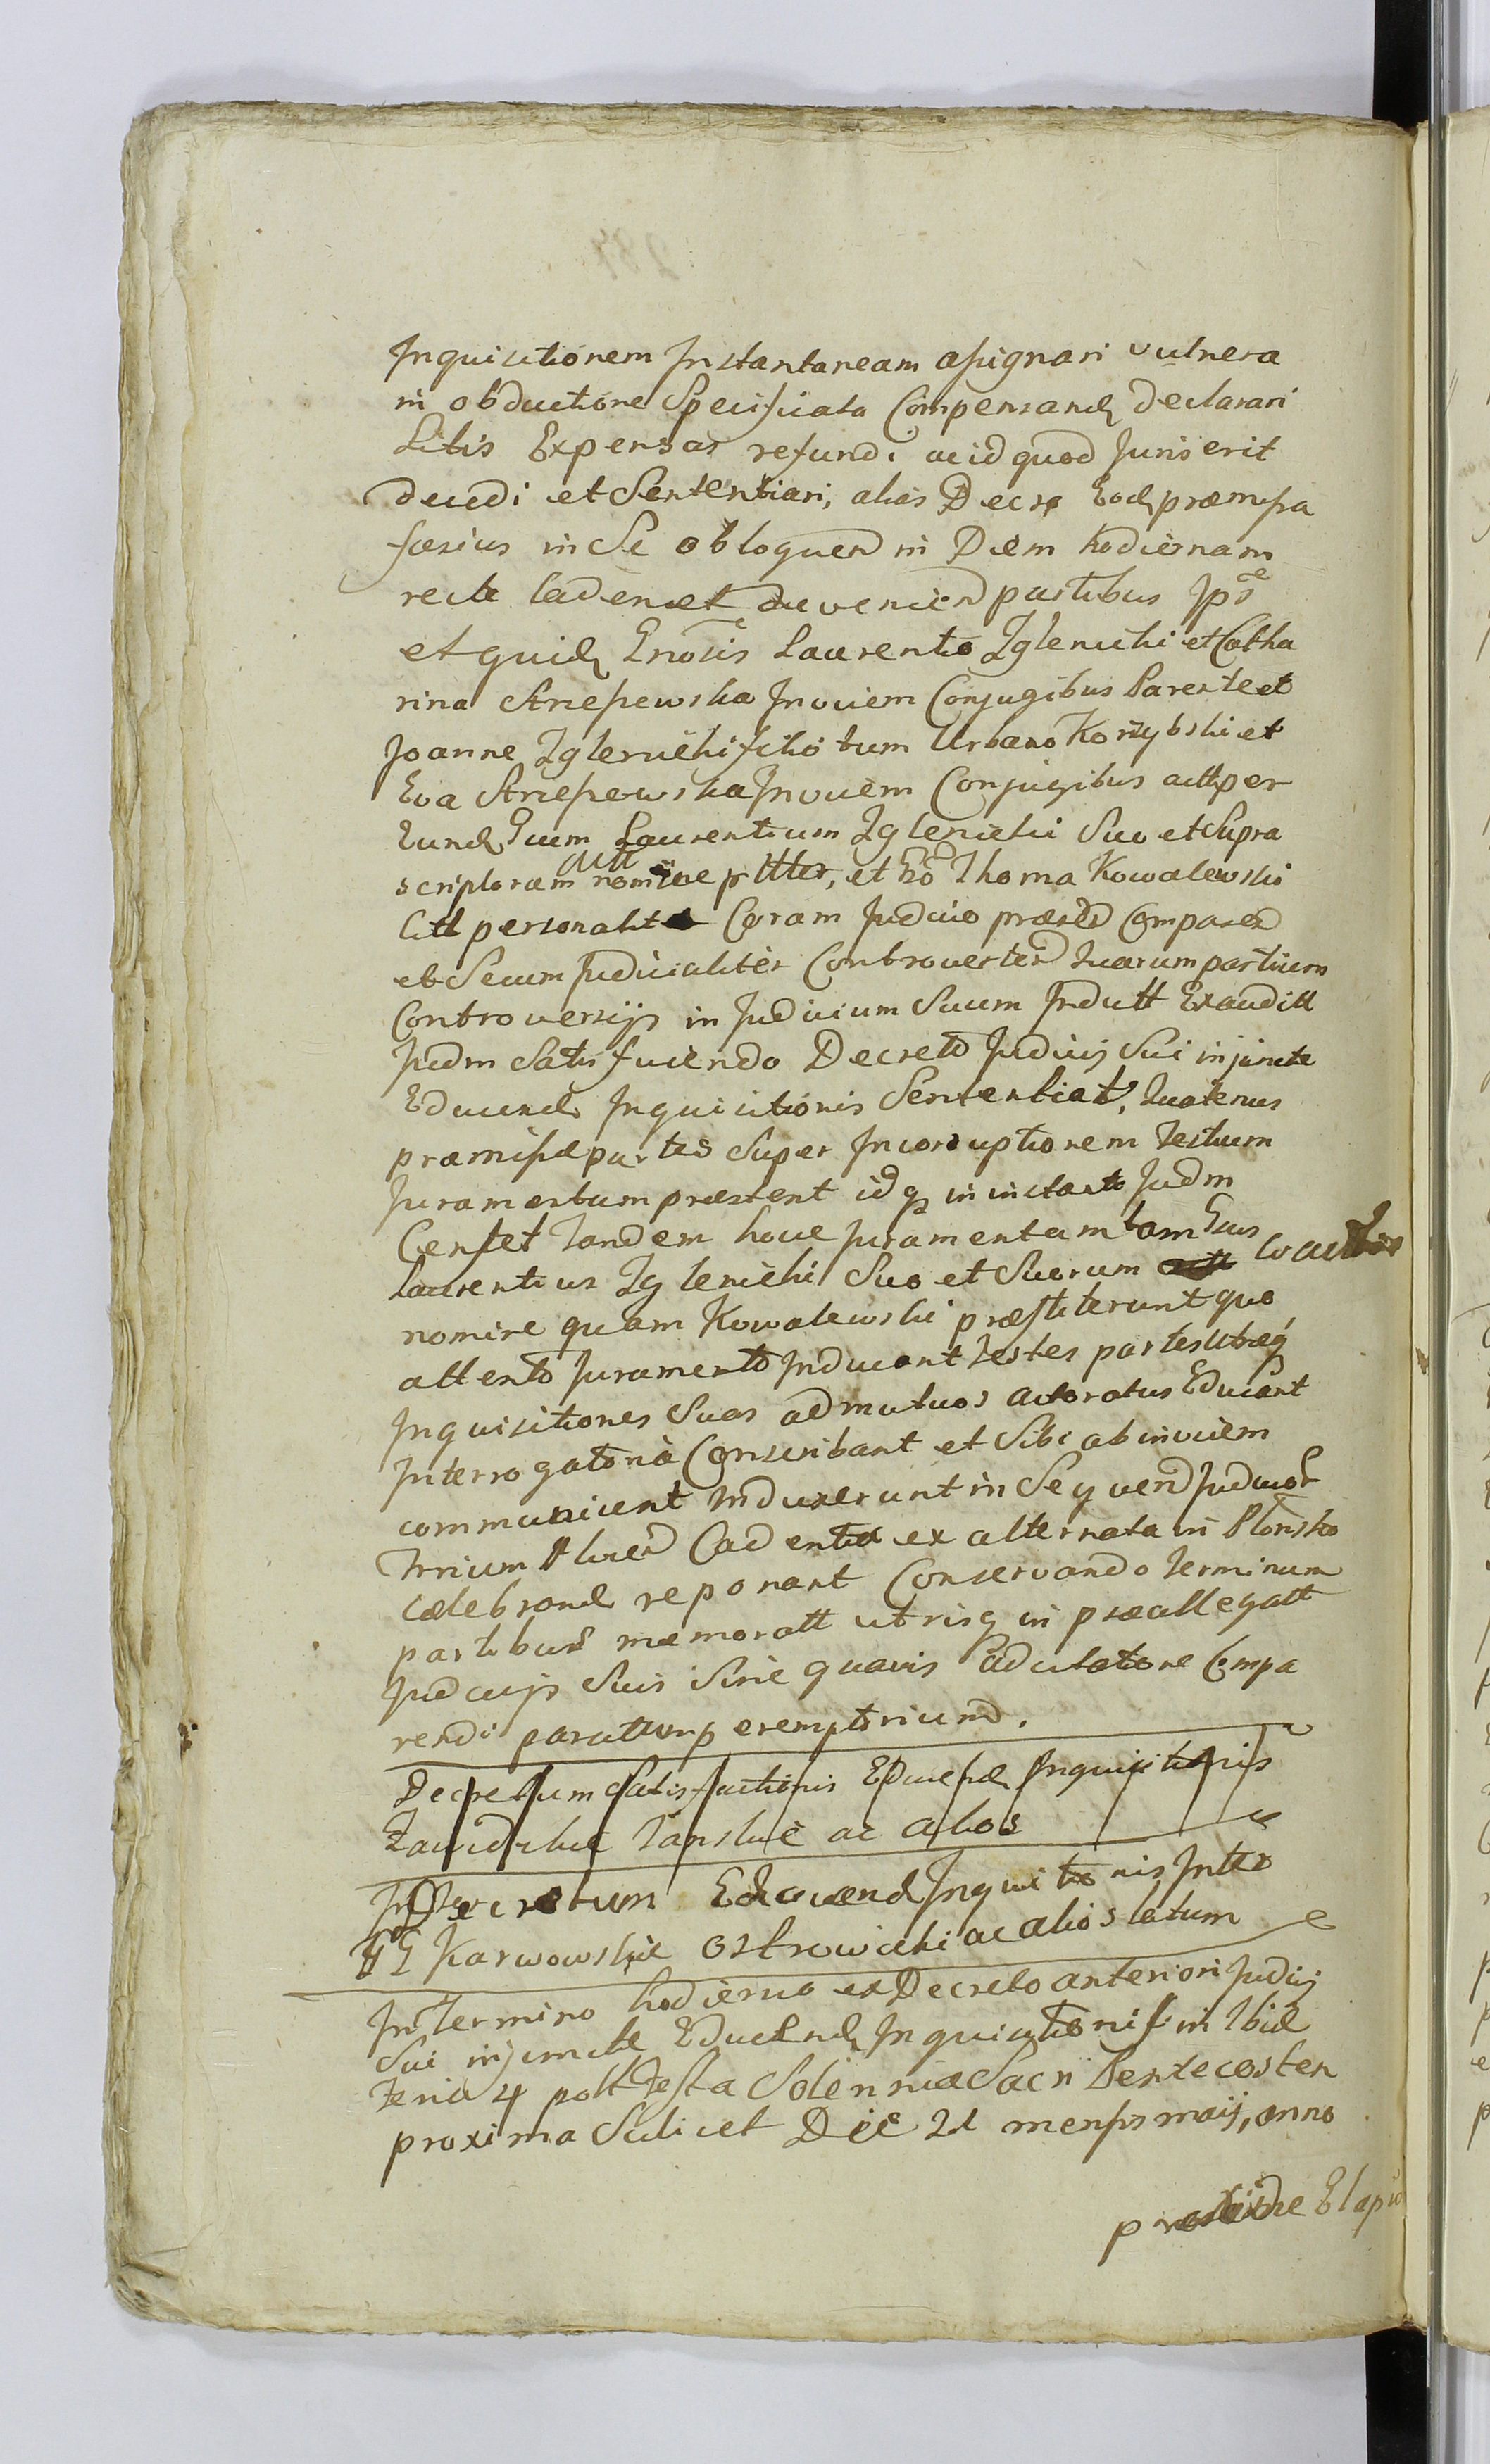 Inquisitionem Instantaneam assignari vulnera
in obductione Specificata Compensand declarari
Litis Expensas refundi ac id quod Juris erit
decidi et Sententiari, alias Decre Eod præmissa
fusius in Se obloquen in Diem hodiernam
recte caden et advenien partibus Ips
et quid Gnosis Laurentio Zglenichi et Catha
rina Strzeszewska Invicem Conjugibus Parente et
Joanne Zglenichi filio tum Urbano Korzybski et
Eva Strzeszewska Invicem Conjugibus actt per
Eund Gum Laurentium Zglenichi Suo et Supra
scriptorum actt nomine pttter, et Go Thoma Kowalewski
Citt personalit Coram Judicio præsen Comparen
et Secum Judicialiter Controverten Quarum partium
Controversijs in Judicium Suum Indutt Exauditt
Judm Satisfaciendo Decreto Judicij Sui injuncte
Educend Inquisitionis Sententiat, Quatenus
præmissæ partes Super Incorruptionem Testium
Juramentum præstent idq in instanti Judm
Censet Tandem hocce Juramentum tam Gsus
Laurentius Zglenichi Suo et Suorum Coactor
nomine quam Kowalewski præstiterunt quo
attento Juramento Inducant Testes partes Utræq
Inquisitiones Suas ad mutuos actoratus Educant
Interrogatoria Conscribant et Sibi ab invicem
communicent Induxerunt in Sequen Judicior
Trrium Plocen Cadentia ex alternata in Plonsko
Celebrand reponant Conservando Terminum
partibus memoratt utrisq in præallegatt
Judicijs Suis Sine quavis adcitatione Compa
rendi paratum peremptorium.
Decretum Satisfactionis Educend Inquisitionis
Zawidzkie Janskie ac alios
Decretum Educend Inquitionis Inter
GG Karwowskie Ostrowicki ac alios latum
In Termino hodierno ex Decreto anteriori Judicij
Sui injuncte Educend Inquisitionis in Ibid
Feria 4 post Festa Solennia Sacri Pentecosten
proxima Scilicet Die 21 mensis maij, anno
Elaps